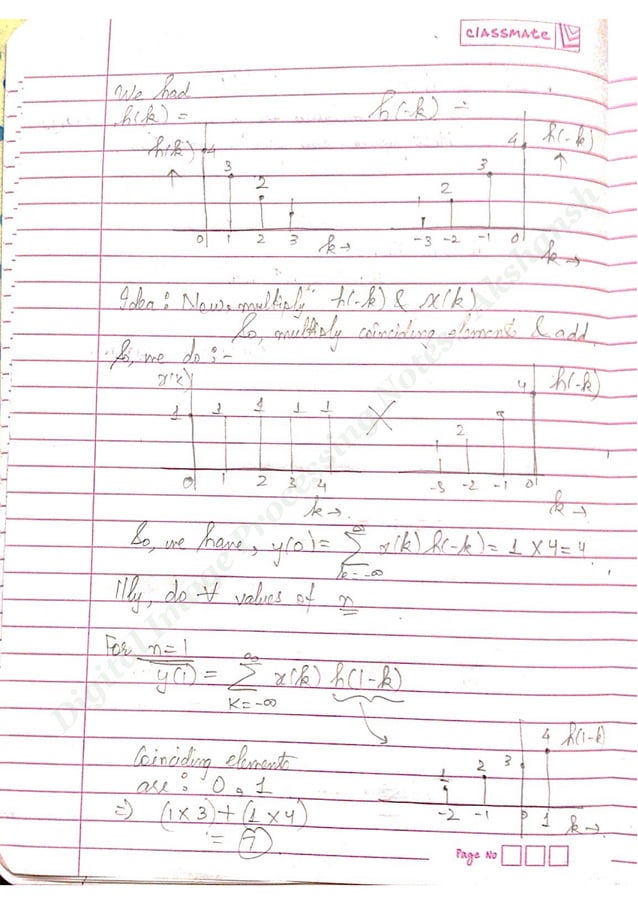 classmate
We had
h(k) =
h(-k) =
h(k) 4 3 2 1
4 h(-k) 3 2 1
0 1 2 3 k→
-3 -2 -1 0 k→
Idea: Now, multiply h(-k) & x(k)
So, multiply coinciding elements & add.
So, we do :-
x(k) 1 1 1 1 1 × 1 2 3 4 h(-k)
0 1 2 3 4 k→
-3 -2 -1 0 k→
So, we have, y(0) = ∑ x(k) h(-k) = 1 × 4 = 4
k=-∞ ∞
Illy, do ∀ values of n
For n=1
y(1) = ∑ x(k) h(1-k)
K=-∞ ∞
Coinciding elements
are : 0, 1
⇒ (1×3)+(1×4)
= 7
1 2 3 4 h(1-k)
-2 -1 0 1 k→
Page No
Digital Image Processing Notes- Akshansh